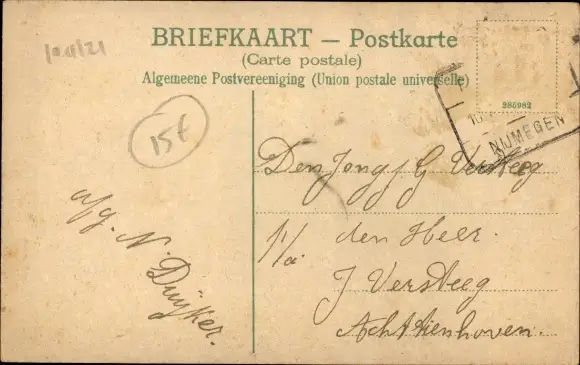 BRIEFKAART — Postkarte
(Carte postale)
Algemeene Postvereeniging (Union postale universelle)
285982
NIJMEGEN
15€
Den Jong J G Versteeg
p/a den Heer.
J Versteeg
Achttienhoven.
afz. N. Duyker.